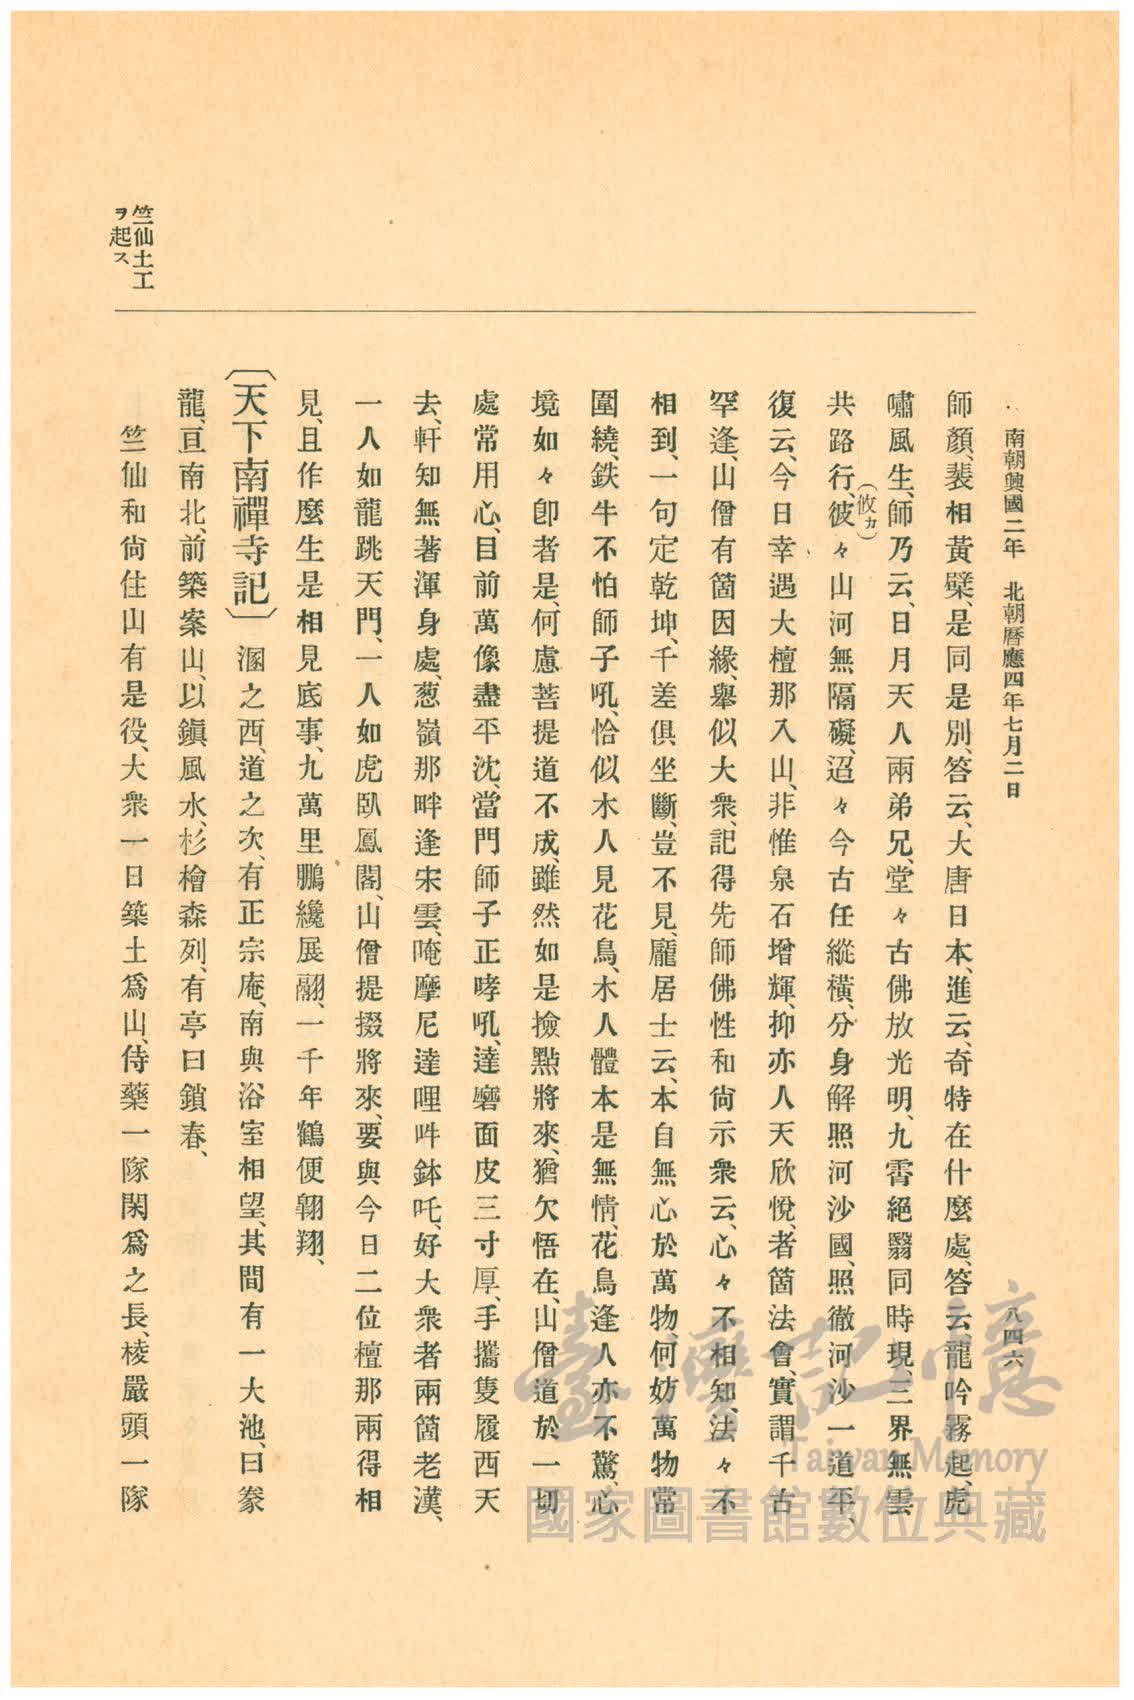 南朝興國二年　北朝曆應四年七月二日
八四六
師顏、裴相黃檗、是同是別、答云、大唐日本、進云、奇特在什麼處、答云、龍吟霧起、虎
嘯風生、師乃云、日月天人兩弟兄、堂々古佛放光明、九霄絕翳同時現、三界無雲
共路行、彼(攸カ)々山河無隔礙、迢々今古任縱橫、分身解照河沙國、照徹河沙一道平、
復云、今日幸遇大檀那入山、非惟泉石增輝、抑亦人天欣悅、者箇法會、實謂千古
罕逢、山僧有箇因緣、舉似大衆、記得先師佛性和尙示衆云、心々不相知、法々不
相到、一句定乾坤、千差俱坐斷、豈不見、龐居士云、本自無心於萬物、何妨萬物常
圍繞、鉄牛不怕師子吼、恰似木人見花鳥、木人體本是無情、花鳥逢人亦不驚、心
境如々卽者是、何慮菩提道不成、雖然如是撿點將來、猶欠悟在、山僧道於一切
處常用心、目前萬像盡平沈、當門師子正哮吼、達磨面皮三寸厚、手攜隻履西天
去、軒知無著渾身處、葱嶺那畔逢宋雲、唵摩尼達哩吽鉢吒、好大衆者兩箇老漢、
一人如龍跳天門、一人如虎臥鳳閣、山僧提掇將來、要與今日二位檀那兩得相
見、且作麼生是相見底事、九萬里鵬纔展翮、一千年鶴便翱翔、
〔天下南禪寺記〕　溷之西、道之次、有正宗庵、南與浴室相望、其間有一大池、曰豢
龍、亘南北、前築案山、以鎭風水、杉檜森列、有亭曰鎖春、
竺仙和尙住山有是役、大衆一日築土爲山、侍藥一隊閑爲之長、棱嚴頭一隊
竺仙土工
ヲ起ス、
臺灣記憶
Taiwan Memory
國家圖書館數位典藏